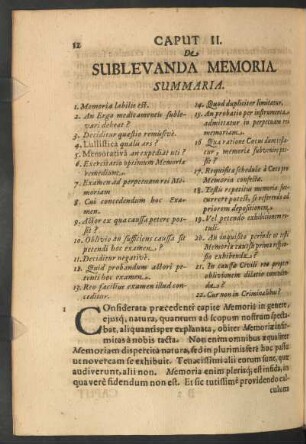 12
CAPUT II.
De
SUBLEVANDA MEMORIA.
SUMMARIA.
1. Memoria labilis est.
2. An Ergo medicamentis suble-
vari debeat?
3. Deciditur quæstio remissivè.
4. Lullistica qualis ars?
5. Memorativâ an expediat uti?
6. Exercitatio optimum Memoriæ
remedium.
7. Examen ad perpetuam rei Me-
moriam
8. Cui concedendum hoc Exa-
men.
9. Actor ex qua causa petere pos-
sit?
10. Oblivio an sufficiens caussa sit
petendi hoc examen?
11. Deciditur negativè.
12. Quid probandum actori pe-
tenti hoc examen.
13. Reo facilius examen illud con-
ceditur.
14. Quod dupliciter limitatur.
15. An probatio per instrumenta
admittatur in perpetuam rei
memoriam.
16 Qua ratione
memoria
17. Requisita schedulæ à
Memoria confectæ.
18. Testis repetitus memoria
currere potest, se referendo ad
priorem depositionem.
19. Vel petendo exhibitionem
tuli.
20. An inquisito
Memoriæ caussâ prius
sit exhibenda?
21. In causa Civili reo propter
oblivionem dilatio
da.
22. Cur non in Criminalibus?
1 COnsiderata præcedenti capite Memoria in genere,
ejusq; natura, quantum ad scopum nostrum specta-
bat, aliquantisper explanata, obiter Memoriæ infir-
mitas à nobis tacta. Non enim omnibus æqualiter
Memoriam dispertita natura, sed in plurimis feré hoc passu
ut novercam se exhibuit. Tenacissimi alii eorum sunt, quæ
audiverunt, alii non. Memoria enim plerisq; est infida, in
qua verè fidendum non est. Et sic tutissimè providendo cal-
culum